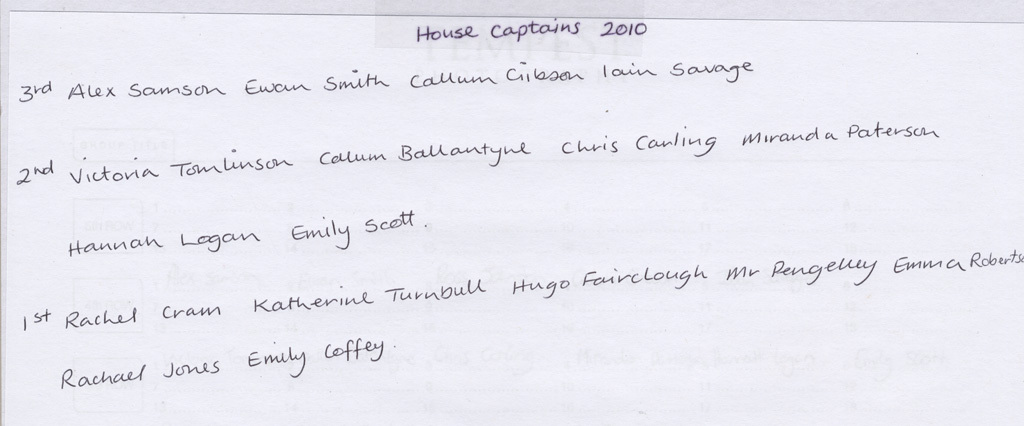 House Captains 2010
3rd Alex Samson Ewan Smith Callum Gibson Iain Savage
2nd Victoria Tomlinson Callum Ballantyne Chris Carling Miranda Paterson
Hannah Logan Emily Scott.
1st Rachel Cram Katherine Turnbull Hugo Fairclough Mr Pengelley Emma Roberts
Rachael Jones Emily Coffey.